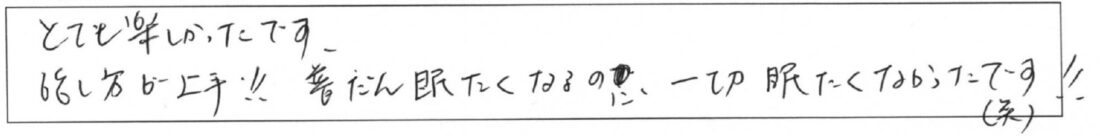 とても楽しかったです。
話し方が上手!! 普だん眠たくなるのに、一切眠たくなかったです!!
(笑)